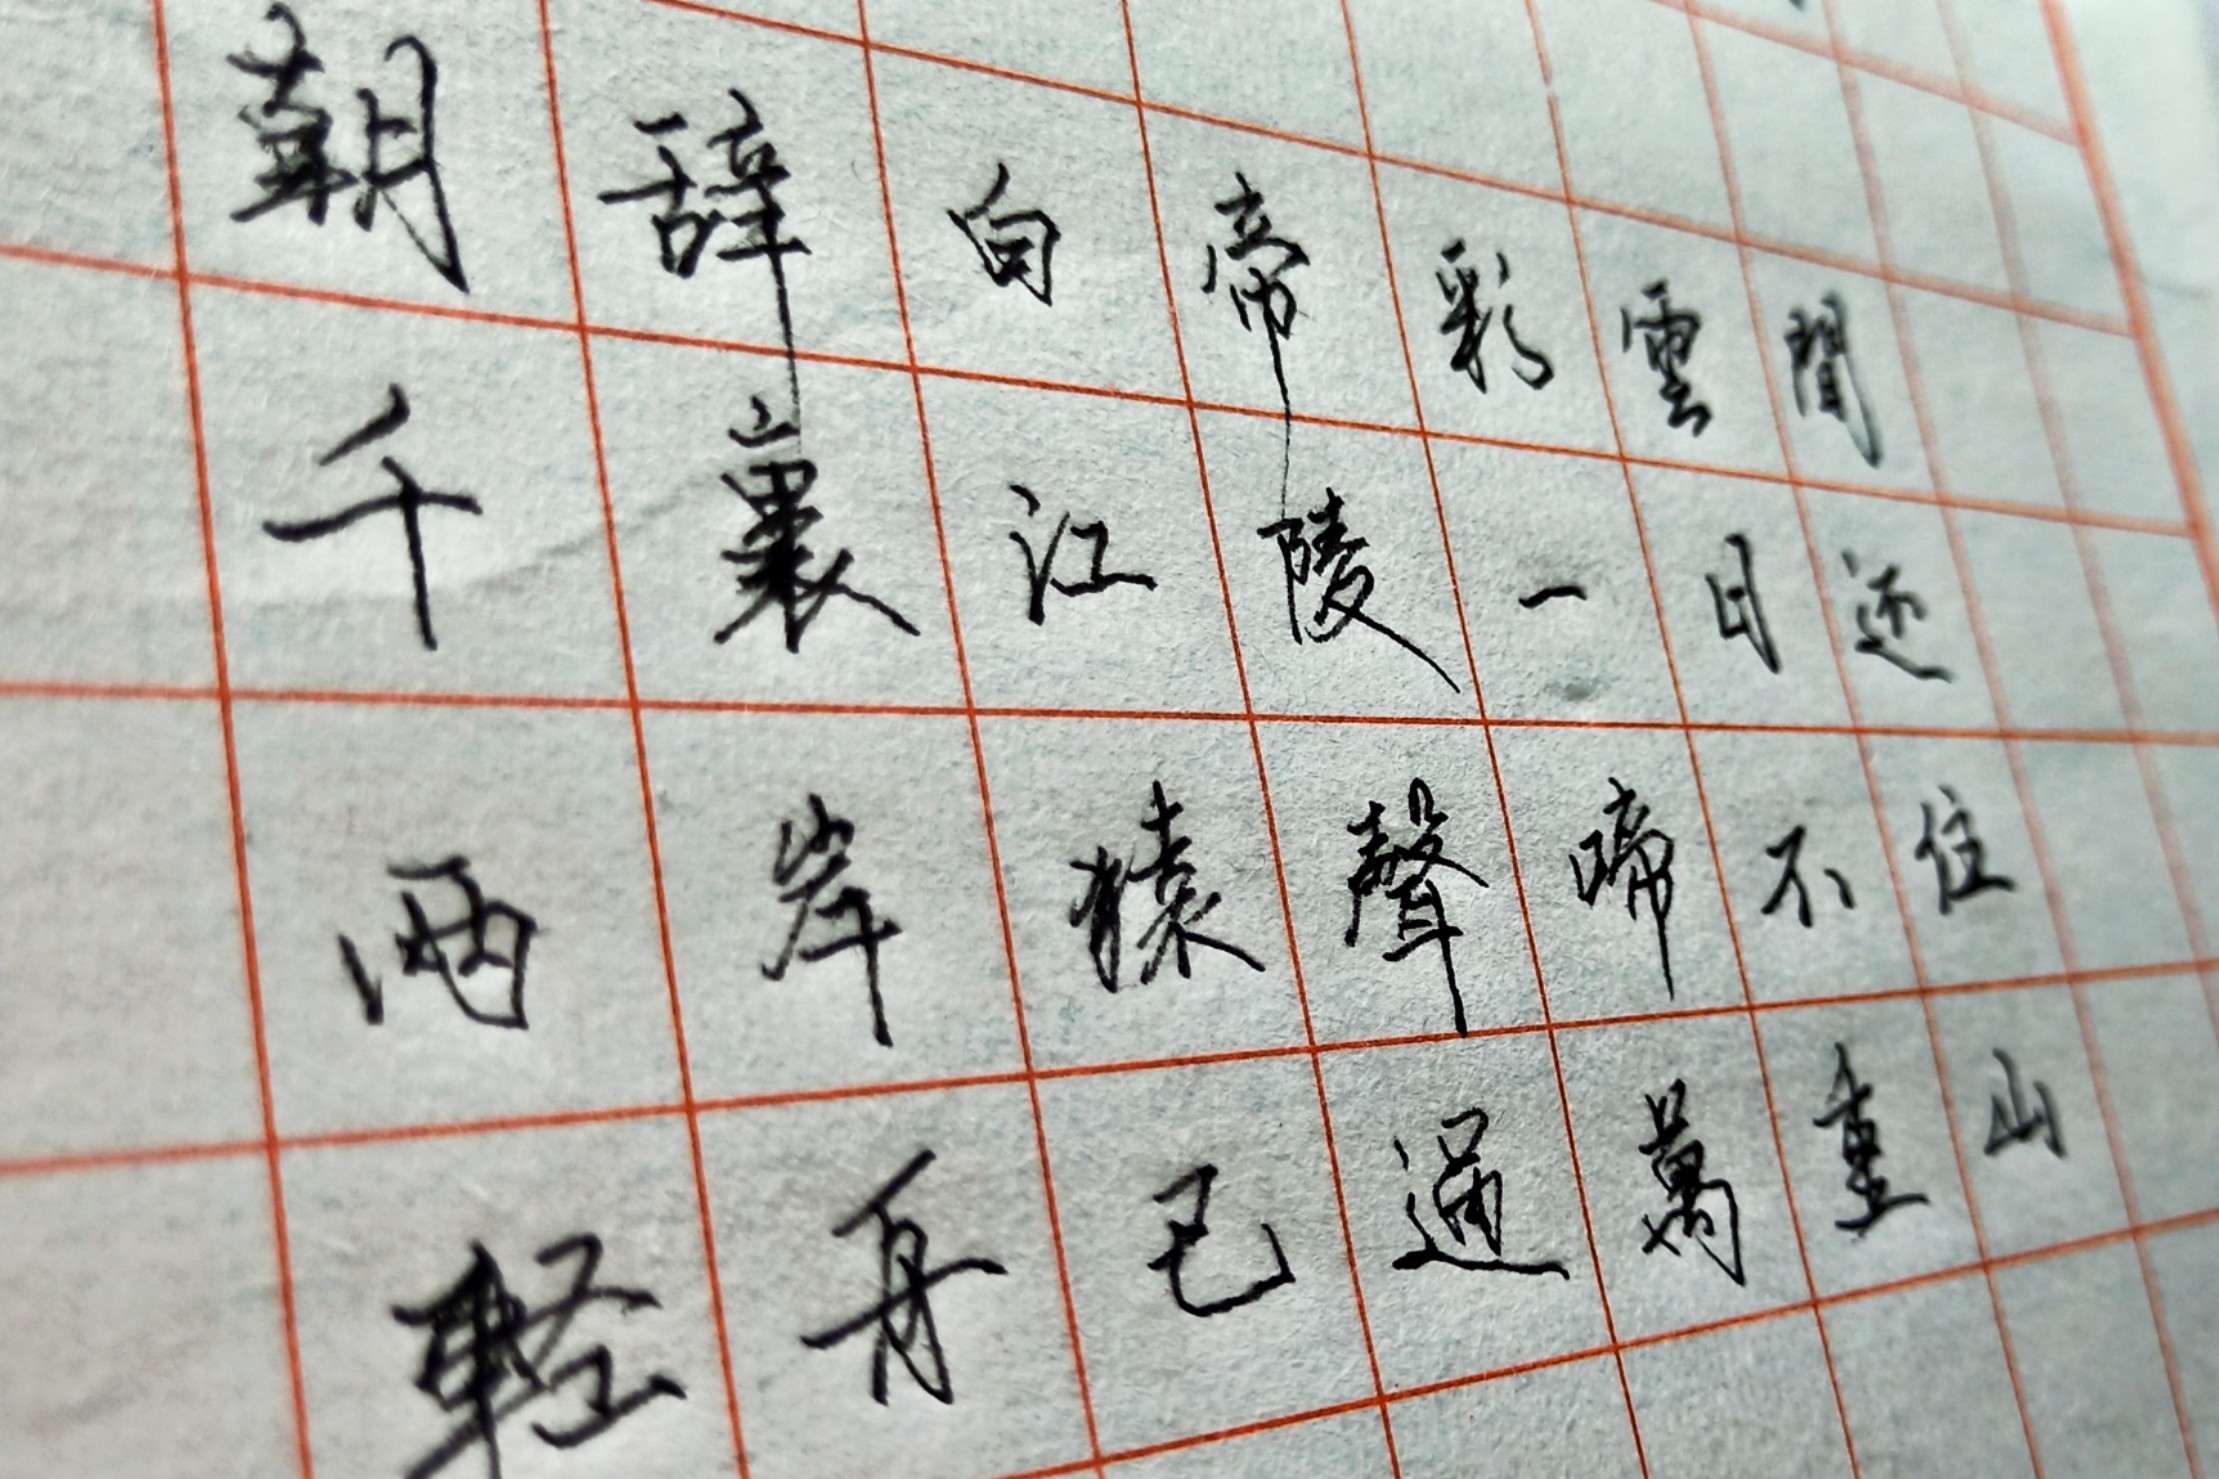 朝辞白帝彩雲間
千裏江陵一日还
两岸猿聲啼不住
軽舟已過萬重山